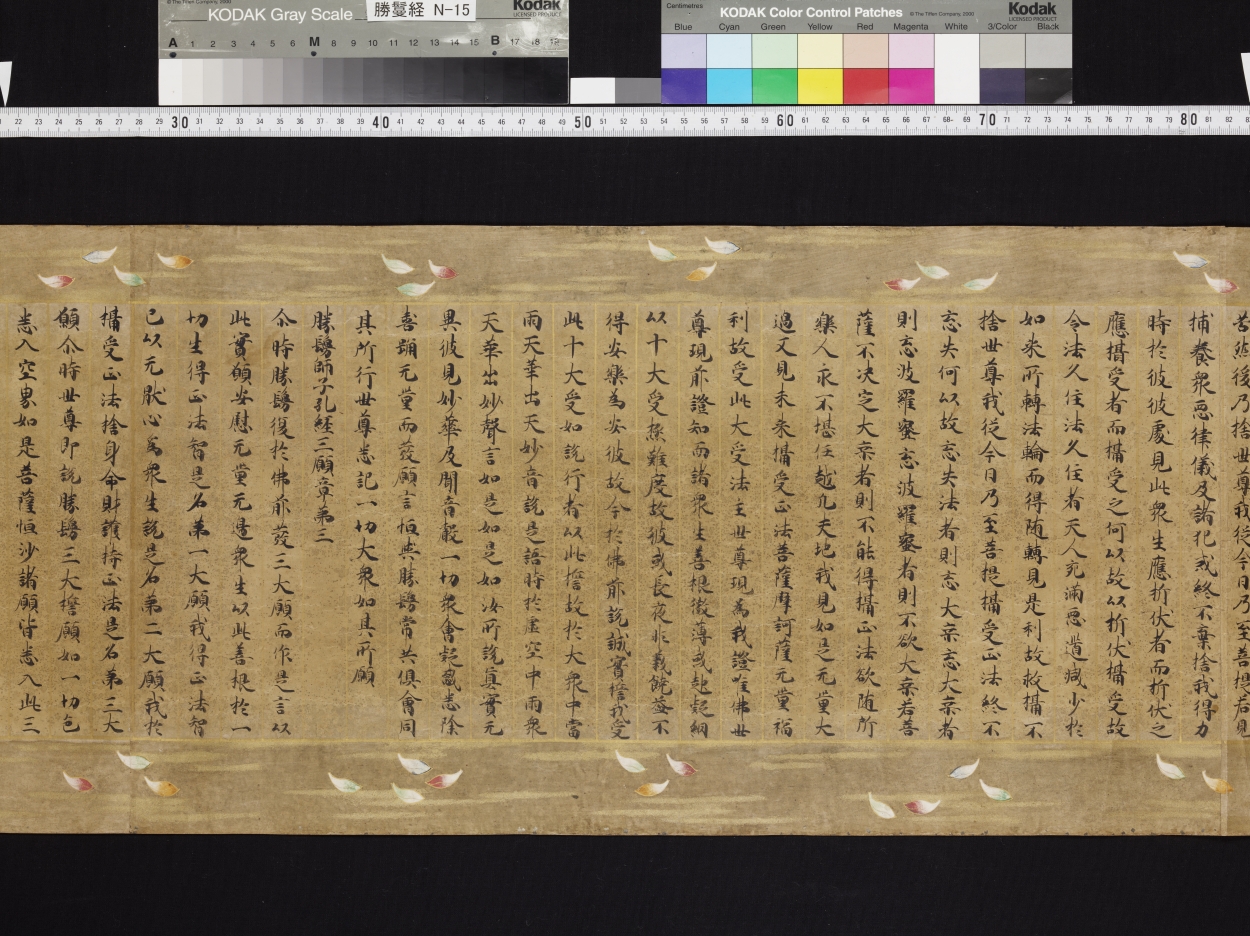 KODAK Gray Scale
勝鬘経 N-15
Kodak
LICENSED PRODUCT
© The Tiffen Company, 2000
A 1 2 3 4 5 6 M 8 9 10 11 12 13 14 15 B 17 18 19
Centimetres
KODAK Color Control Patches
© The Tiffen Company, 2000
Kodak
LICENSED PRODUCT
Blue Cyan Green Yellow Red Magenta White 3/Color Black
22 23 24 25 26 27 28 29 30 31 32 33 34 35 36 37 38 39 40 41 42 43 44 45 46 47 48 49 50 51 52 53 54 55 56 57 58 59 60 61 62 63 64 65 66 67 68 69 70 71 72 73 74 75 76 77 78 79 80 81 82
苦然後乃捨世尊我從今日乃至菩提若見
捕養衆惡律儀及諸犯戒終不棄捨我得力
時於彼彼處見此衆生應折伏者而折伏之
應攝受者而攝受之何以故以折伏攝受故
令法久住法久住者天人充滿惡道減少於
如來所轉法輪而得随轉見是利故救攝不
捨世尊我從今日乃至菩提攝受正法終不
忘失何以故忘失法者則忘大乗忘大乗者
則忘波羅蜜忘波羅蜜者則不欲大乗若菩
薩不决定大乗者則不能得攝正法欲随所
樂入永不堪任越凡夫地我見如是无量大
過又見未來攝受正法菩薩摩訶薩无量福
利故受此大受法主世尊現為我證唯佛世
尊現前證知而諸衆生善根微薄或起疑網
以十大受極難度故彼或長夜非義饒益不
得安樂為安彼故今於佛前說誠實誓我受
此十大受如說行者以此誓故於大衆中當
雨天華出天妙音說是語時於虚空中雨衆
天華出妙聲言如是如是如汝所說真實无
異彼見妙華及聞音聲一切衆會疑惑悉除
喜踊无量而發願言恒與勝鬘常共俱會同
其所行世尊悉記一切大衆如其所願
勝鬘師子吼經三願章第三
尒時勝鬘復於佛前發三大願而作是言以
此實願安慰无量无邊衆生以此善根於一
切生得正法智是名第一大願我得正法智
已以无猒心為衆生說是名第二大願我於
攝受正法捨身命財護持正法是名第三大
願尒時世尊即說勝鬘三大誓願如一切色
悉入空界如是菩薩恒沙諸願皆悉入此三